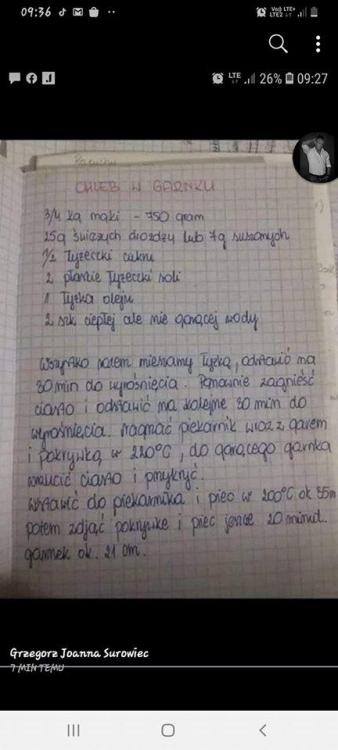 09:36
Vo)) LTE+
LTE2
LTE 26% 09:27
CHLEB W GARNKU
3/4 kg mąki - 750 gram
25g świeżych drożdży lub 7g suszonych
1/2 łyżeczki cukru
2 płaskie łyżeczki soli
1 łyżka oleju
2 szk ciepłej ale nie gorącej wody
Wszystko razem mieszamy łyżką, odstawić na
30 min do wyrośnięcia. Ponownie zagnieść
ciasto i odstawić na kolejne 30 min do
wyrośnięcia. Nagrzać piekarnik wraz z garem
i pokrywką w 220°C, do gorącego garnka
wrzucić ciasto i przykryć.
Wstawić do piekarnika i piec w 200°C ok 35m
potem zdjąć pokrywkę i piec jeszcze 20 minut.
garnek ok. 21 cm.
Grzegorz Joanna Surowiec
7 MIN TEMU